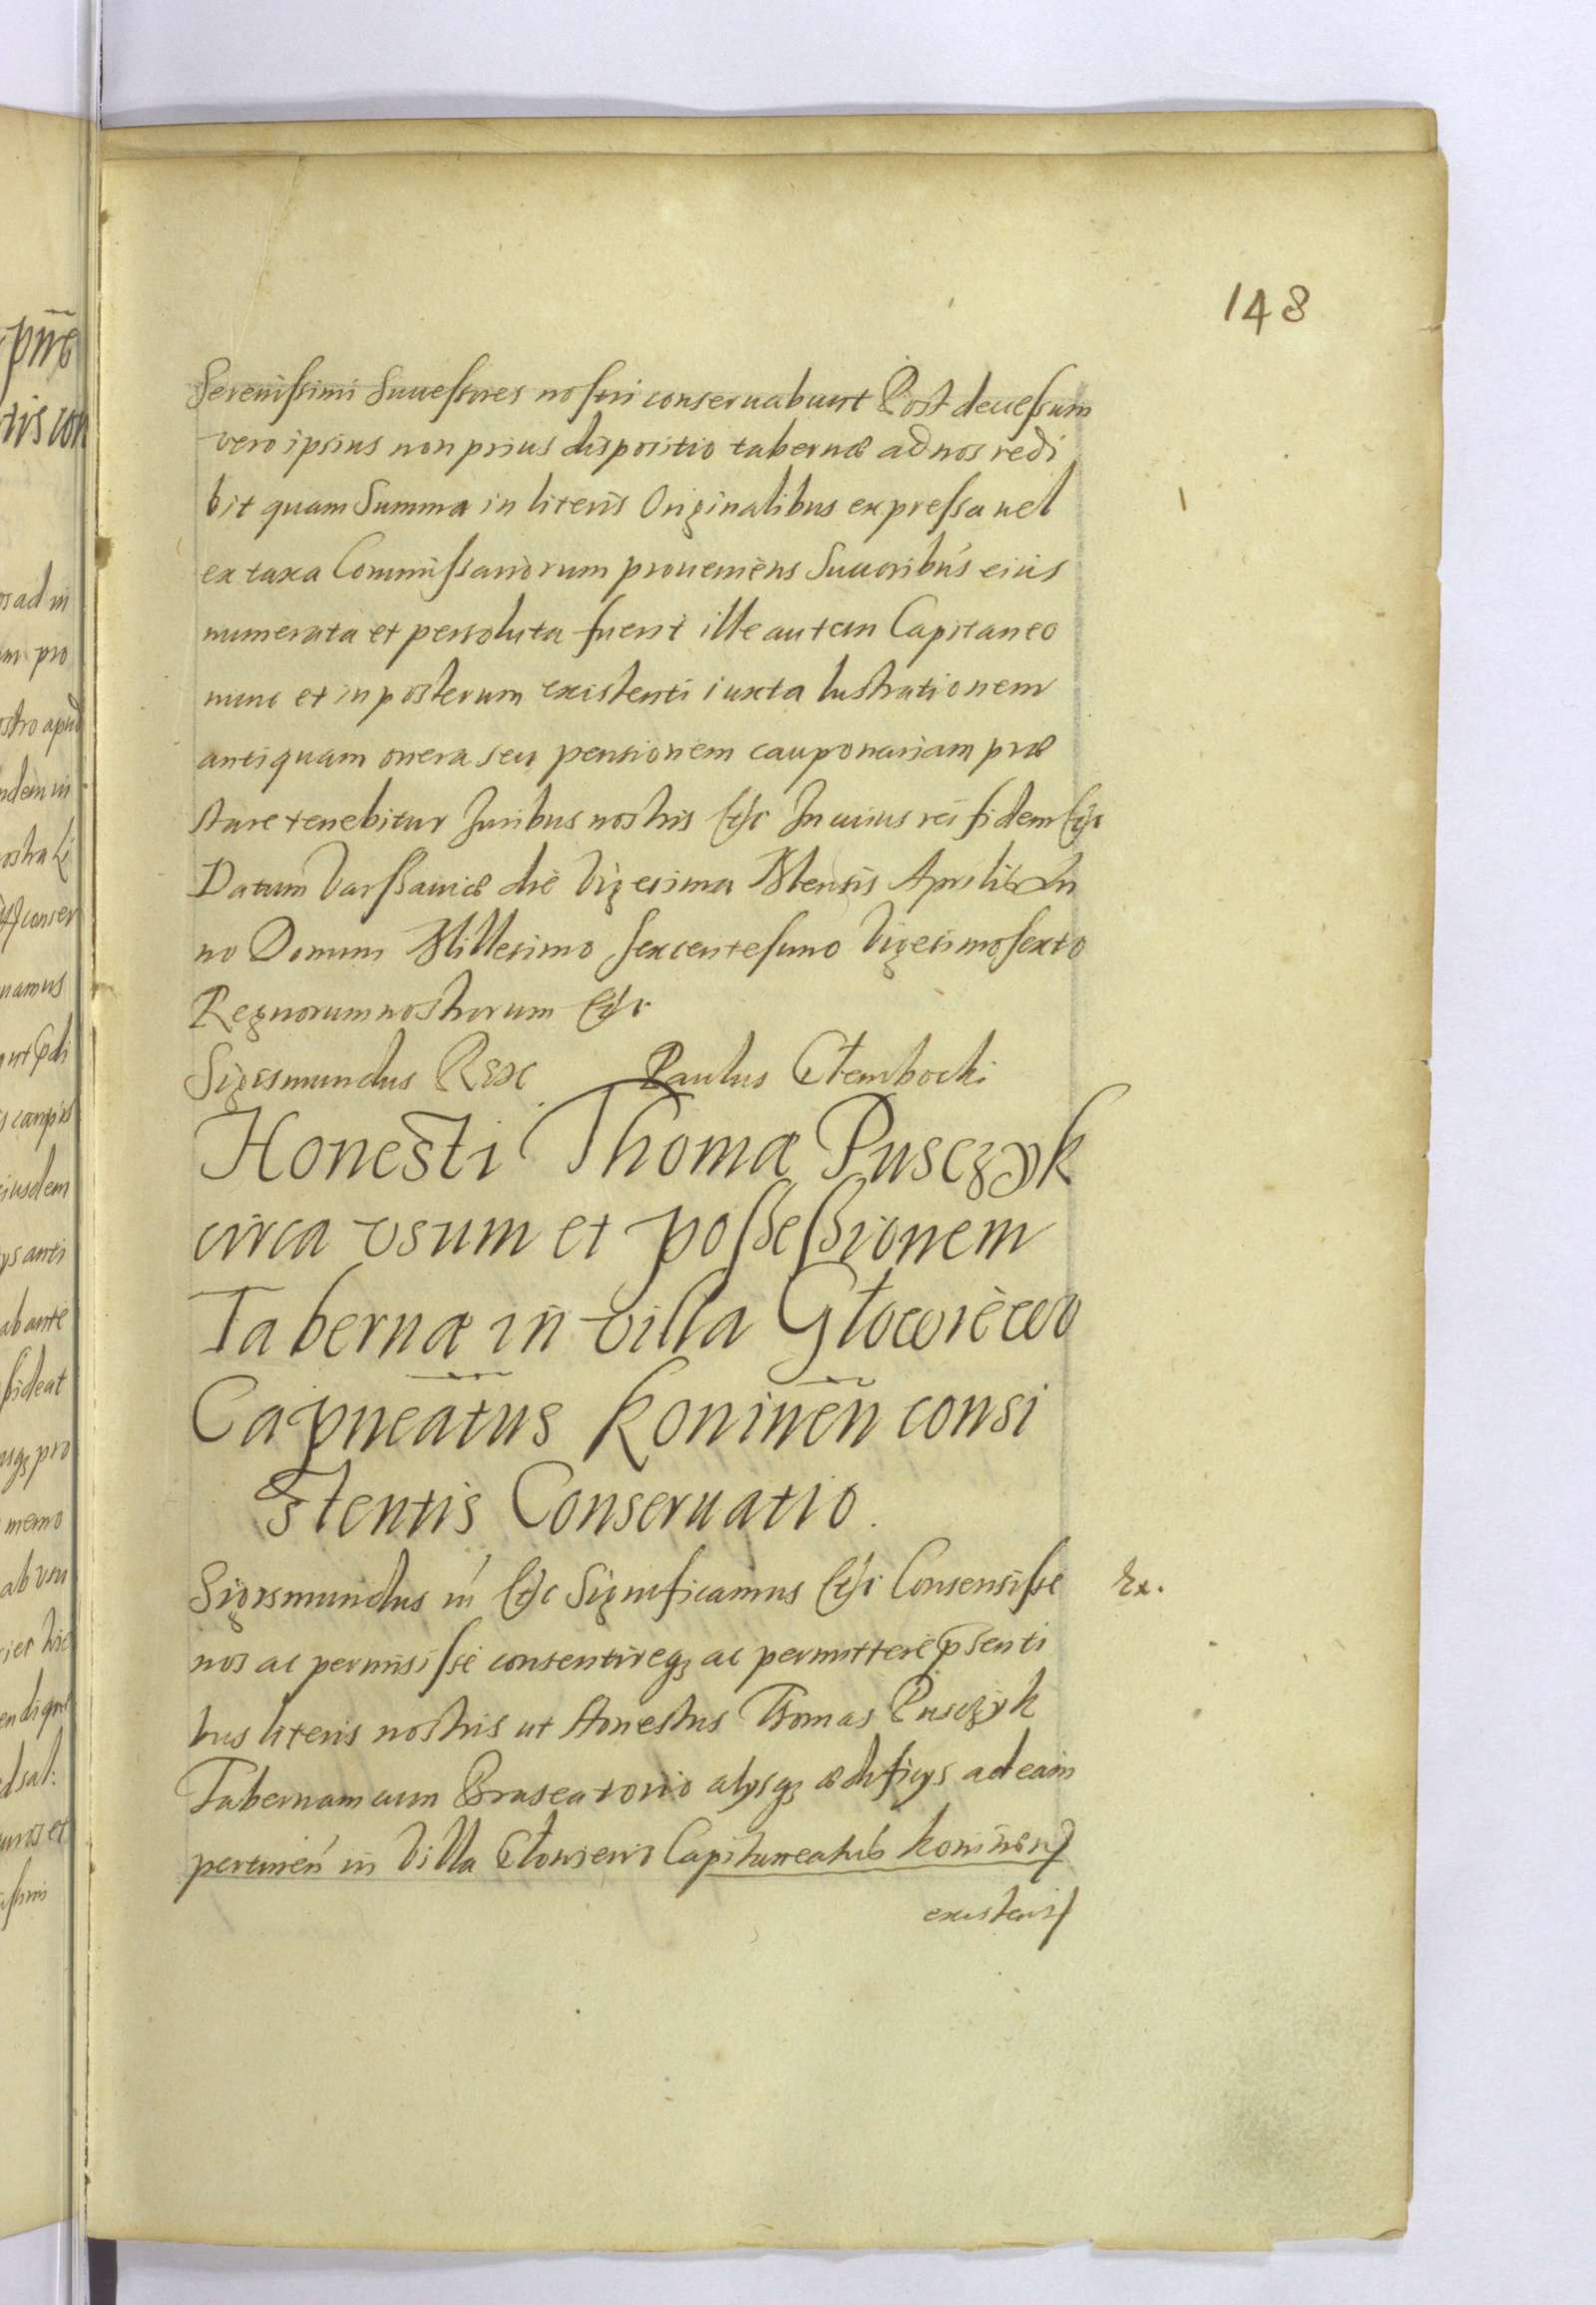 148
Serenissimi Successores nostri conseruabunt Post decessum
vero ipsius non prius dispositio tabernæ ad nos redi
bit quam Summa in literis Originalibus expressa uel
ex taxa Commissariorum proueniens Succoribus eius
numerata et persoluta fuerit ille autem Capitaneo
nunc et in posterum existenti iuxta lustrationem
antiquam onera seu pensionem cauponariam præ
stare tenebitur Juribus nostris etc In cuius rei fidem etc
Datum Varssauiæ die Vigesima Mensis Aprilis An
no Domini Millesimo sexcentesimo Vigesimosexto
Regnorum nostrorum etc
Sigismundus Rex Paulus Ctembocki
Honesti Thomæ Pusczyk
circa vsum et possessionem
Tabernæ in villa Głowiewo
Capneatus Koninen consi
stentis Conseruatio.
Sigismundus iii etc Significamus etc Consensisse
Ex.
nos ac permisisse consentireq; ac permittere p̄senti
bus literis nostris ut Honestus Thomas Pusczyk
Tabernam cum Braseatorio alysq; ædificys ad eam
pertinen in Villa Capitaneatus Koninen
existens